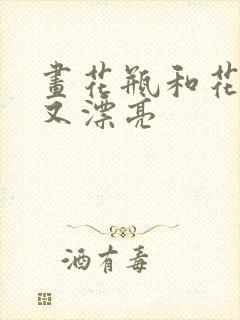 畫花瓶和花
又漂亮
酒有毒